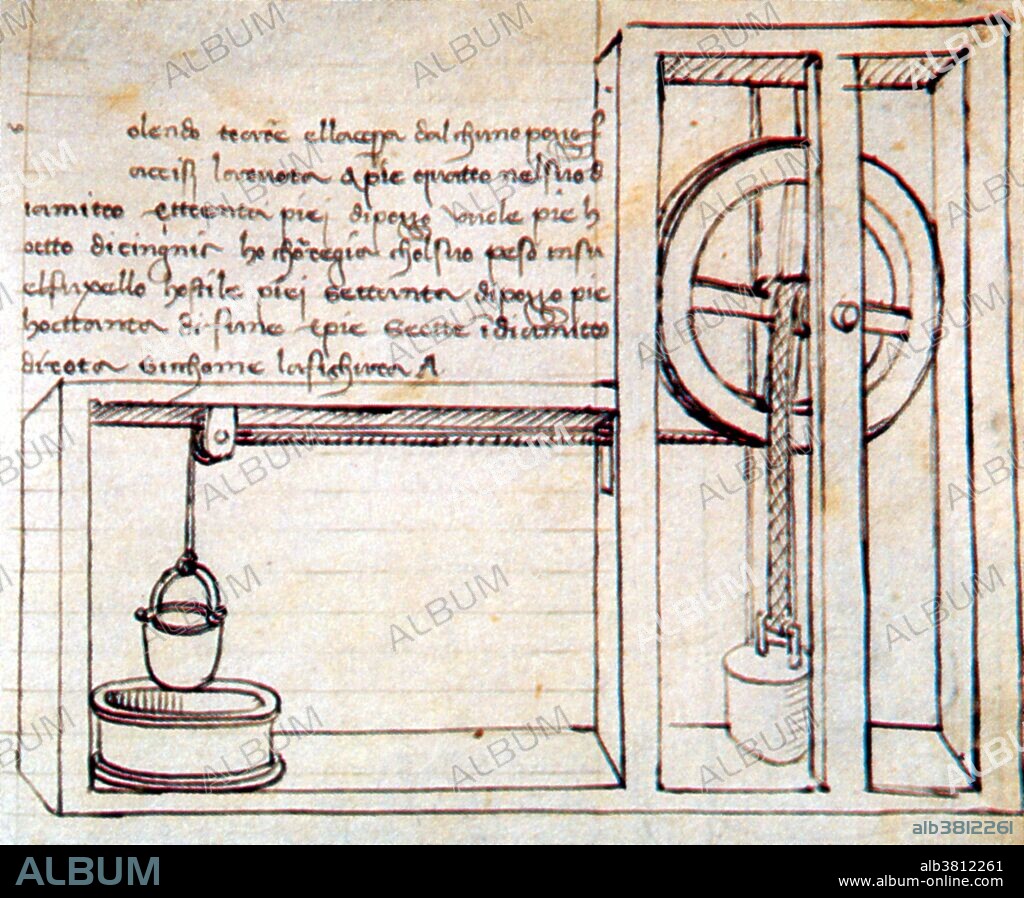 olendo trarē ellacqua dal chupo pozo f
accisi laruota Apie quatto nelsuo d
iamitro e ttrenta piei dipozzo vuole pie h
octto di cingnie ho chōregia cholsuo peso insu
elfuxello hostile piei settanta dipozzo pie
hocttanta di fune epie sectte idiamitro
dirota sicchome lafighura A
ALBUM
alb3812261
ALBUM
alb3812261
www.album-online.com